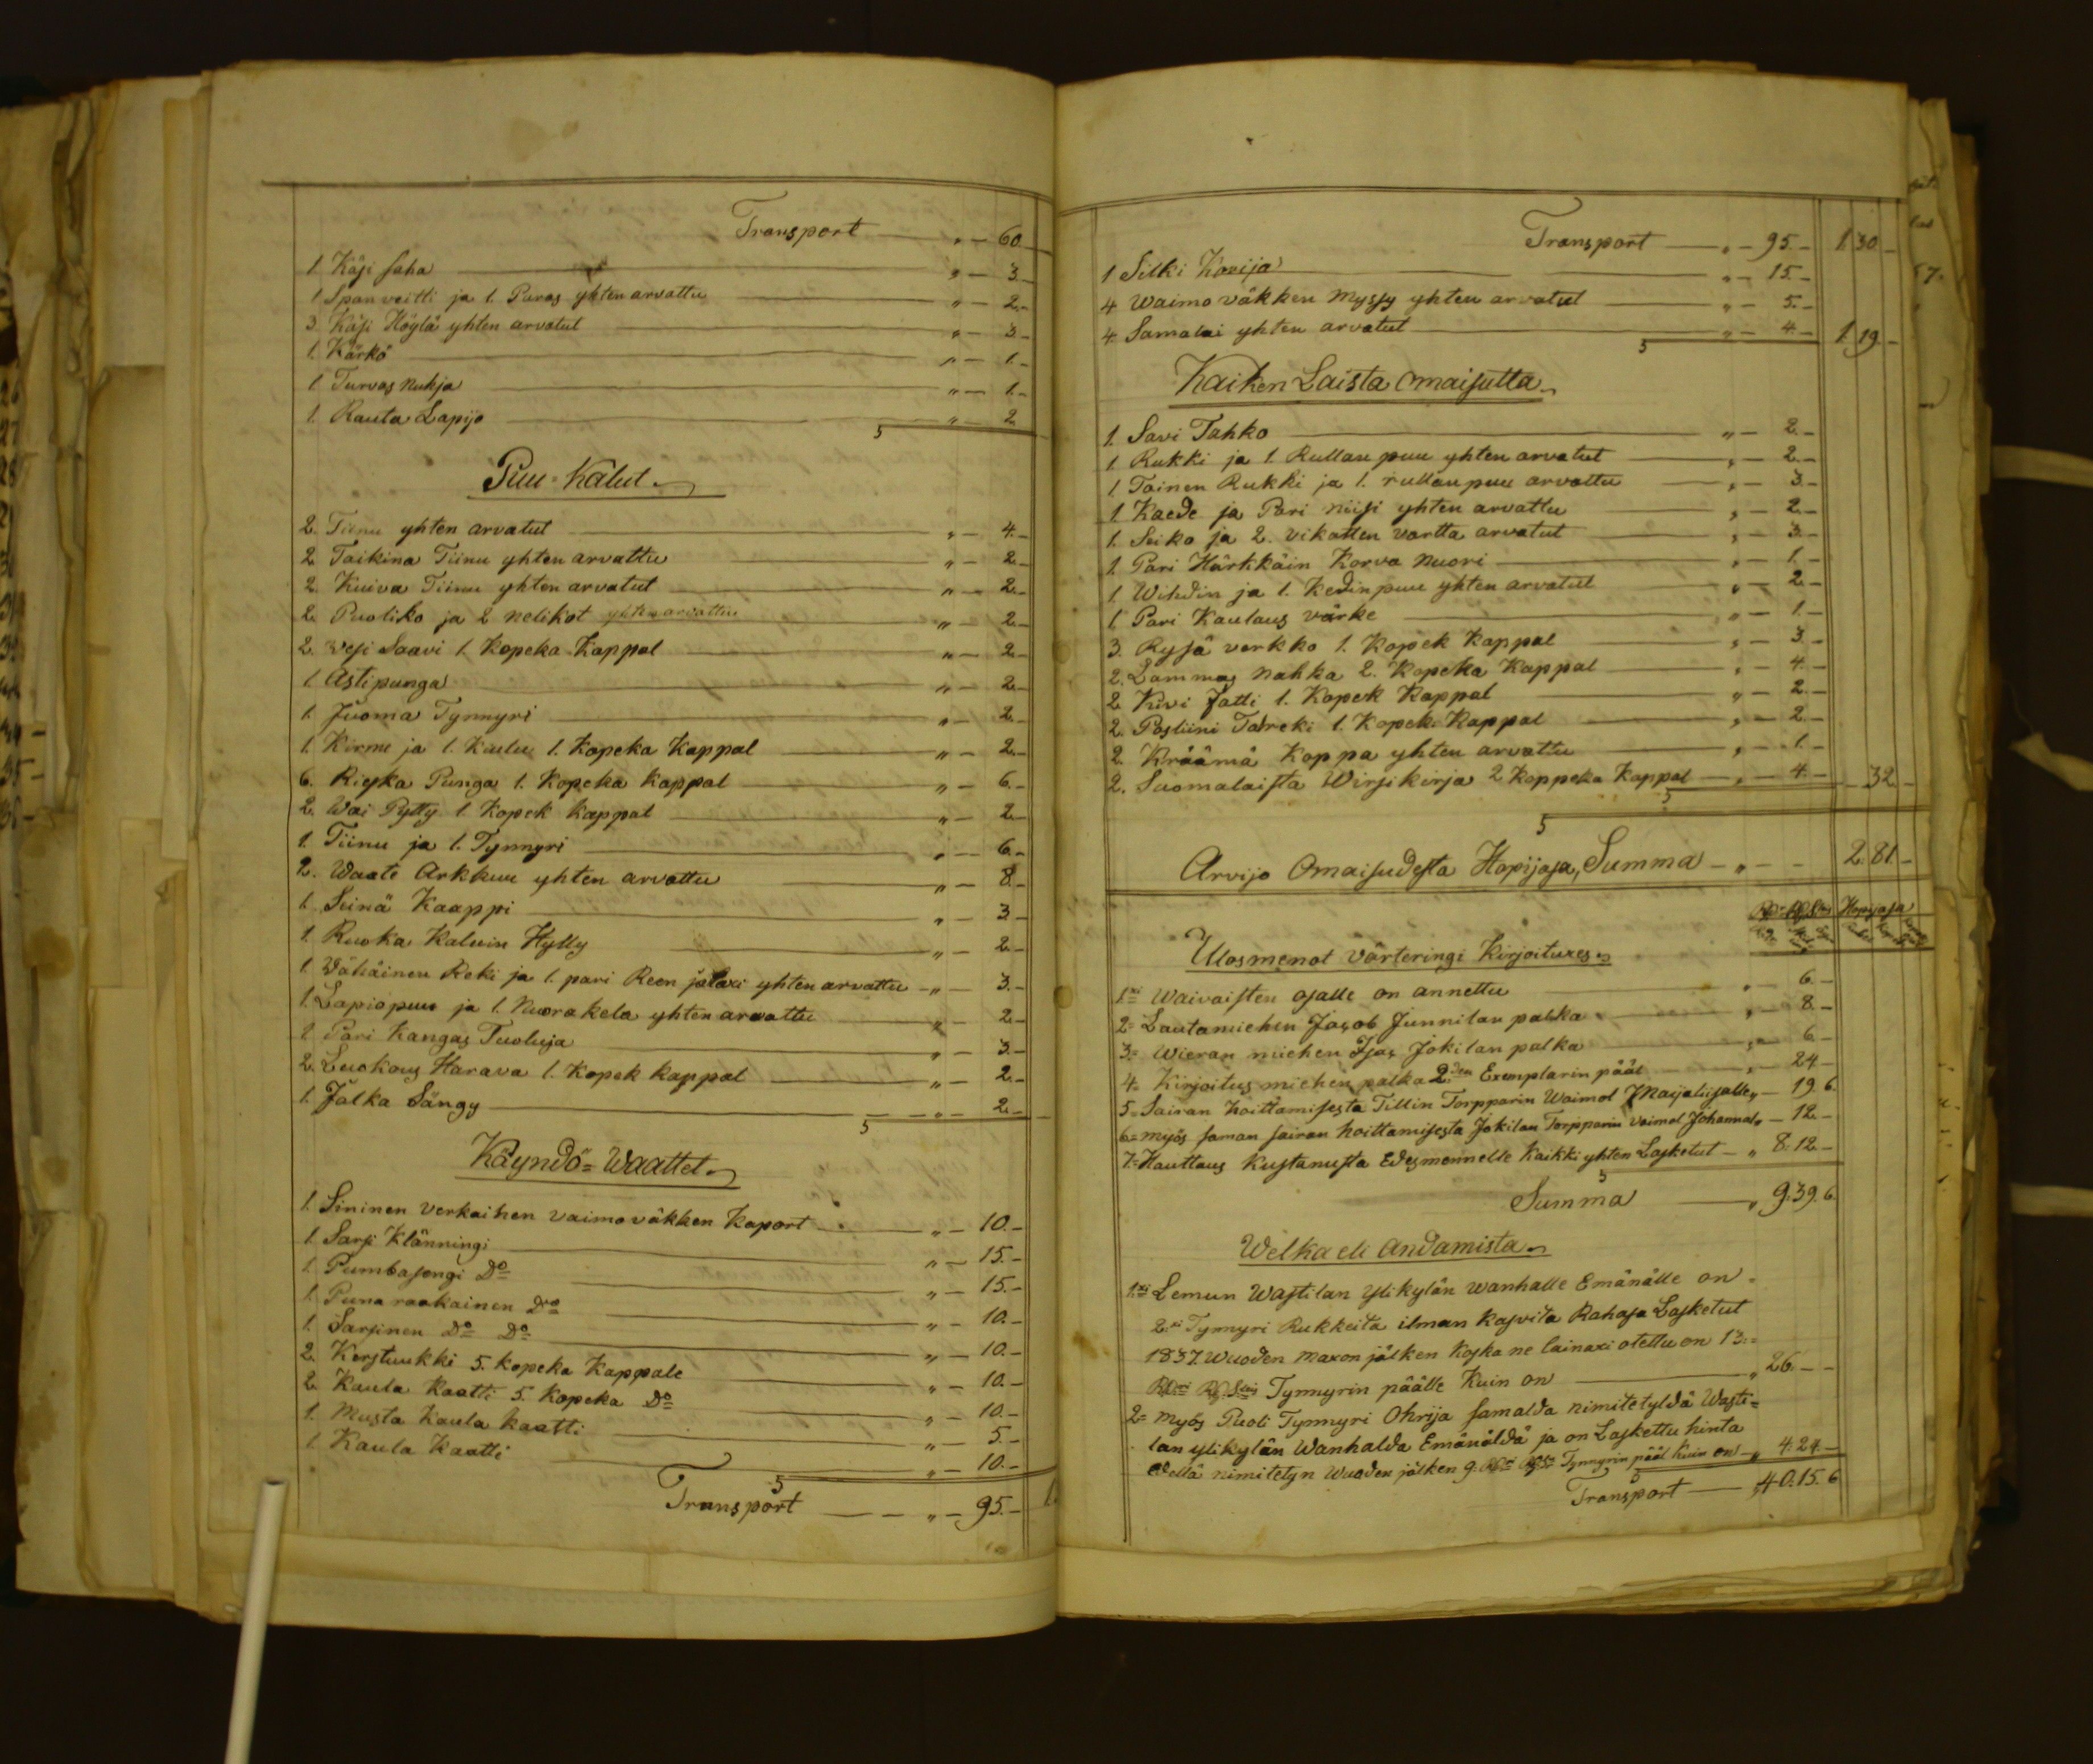 Transport — „ — 60
1 Käsi saha — „ — 3.
1 Spanveitti ja 1. Puras yhten arvattu — „ — 2.-
3 Käsi Höylä yhten arvatut — „ — 3-
1. Kärkö — „ — 1.-
1 Turvas Nuhja — „ — 1.-
1. Rauta Lapijo — „ — 2
Puu-Kalut.
2. Tiinu yhten arvatut — „ — 4.-
2 Taikina Tiinu yhten arvattu — „ — 2.-
2. Kuiva Tiinu yhten arvatut — „ — 2.-
2. Puoliko ja 2 Nelikot yhten arvattu — „ — 2.-
2. Wesi Saavi 1. Kopeka Kappal — „ — 2.-
1. Astipunga — „ — 2.-
1. Juoma Tynnyri — „ — 2.-
1. Kirnu ja 1. Kaulu 1. Kopeka Kappal — „ — 2.-
6. Rieska Punga 1. Kopeka Kappal — „ — 6.-
2. Woi Pytty 1. Kopek Kappal — „ — 2.-
1. Tiinu ja 1. Tynnyri — „ — 6.-
2. Waate Arkkuu yhten arvattu — „ — 8.-
1. Seinä Kaappi — „ — 3-
1. Ruoka Kaluin Hylly — „ — 2.-
1. Wähäinen Reki ja 1. pari Reen jalaxi yhten arvattu — „ — 3.-
1. Lapiopuu ja 1. Nuorakela yhten arvattu — „ — 2.-
1 Pari Kangas Tuoluja — „ — 3.-
2. Luokous Harava 1. Kopek Kappal — „ — 2.-
1. Jalka Sängy — „ — 2.-
Käyndö-Waattet.
1. Sininen verkaihen vaimoväkken Kaport — „ — 10.-
1. Sarsi Klänningi — „ — 15.-
1. Pumbasengi Do — „ — 15.-
1. Puna raakainen Do — „ — 10.-
1. Sarsinen Do Do — „ — 10.-
2. Kerstuukki 5. Kopeka Kappale — „ — 10.-
2. Kaula Kaatti 5. Kopeka Do — „ — 10.-
1. Musta Kaula Kaatti — „ — 5.-
1. Kaula Kaatti — „ — 10.-
Transport — „ — 95.- 1.
Transport — „ — 95.- 1.30-
1 Silki Korija — „ — 15.-
4 Waimo väkken Myssy yhten arvatut — „ — 5.-
4. Samalai yhten arvatut — „ — 4.- 1.19.-
Kaiken Laista Omaisutta
1. Savi Tahko — „ — 2.-
1. Rukki ja 1. Rullan puu yhten arvatut — „ — 2.-
1. Toinen Rukki ja 1. rullan puu arvattu — „ — 3.-
1 Kaede ja Pari Niisi yhten arvattu — „ — 2.-
1. Seiko ja 2. vikatten vartta arvatut — „ — 3.-
1. Pari Härkkäin Korva Nuori — „ — 1.-
1. Wihdin ja 1. Kedinpuu yhten arvatut — „ — 2.-
1. Pari Kaulaus värke — „ — 1.-
3. Rysä verkko 1. Kopek Kappal — „ — 3-
2. Lammas Nahka 2. Kopeka Kappal — „ — 4.-
2. Kivi Fatti 1. Kopek Kappal — „ — 2.-
2. Posliini Tareki 1. Kopek Kappal — „ — 2-
2. Kräämä Koppa yhten arvattu — „ — 1.-
2. Suomalaista Wirsikirja 2 Koppeka Kappal — „ — 4.- -32-
Arvijo Omaisudesta Hopijasa, Summa — „ — 2.81-
Hopijasa
Ulosmenot värteringi Kirjoituxes
1xi Waivaisten osalle on annettu — „ — 6.-
2= Lautamiehen Jacob Junnilan palka — „ — 8.-
3= Wieran miehen Isac Jokilan palka — „ — 6.-
4= Kirjoitus miehen palka 2den Exemplarin pääl — „ — 24-
5= Sairan hoittamisesta Tillin Torpparin Waimol Maijaliisalle „ — 19.6.
6= Myös saman sairan hoittamisesta Jokilan Torpparin vaimol Johannal „ — 12.-
7= Hauttaus Kustanusta Edesmennelle Kaikki yhten Lasketut — „ 8.12.-
Summa — „ 9.39.6.
Welka eli Andamista
1xi Lemun Wastilan Ylikylän Wanhalle Emänälle on
2xi Tynnyri Rukkeita ilman Kasvita Rahasa Lasketut
1837. Wuoden maxon jälken Koska ne lainaxi otettu on 13=
Tynnyrin päälle Kuin on — „ 26.--
2= Myös Puoli Tynnyri Ohrija samalda nimitetyldä Wasti=
lan ylikylän Wanhalda Emänäldä ja on Laskettu hinta
edellä nimitetyn Wuoden jälken 9. Tynnyrin pääl Kuin on — „ 4.24.-
Transport — „ 40.15.6